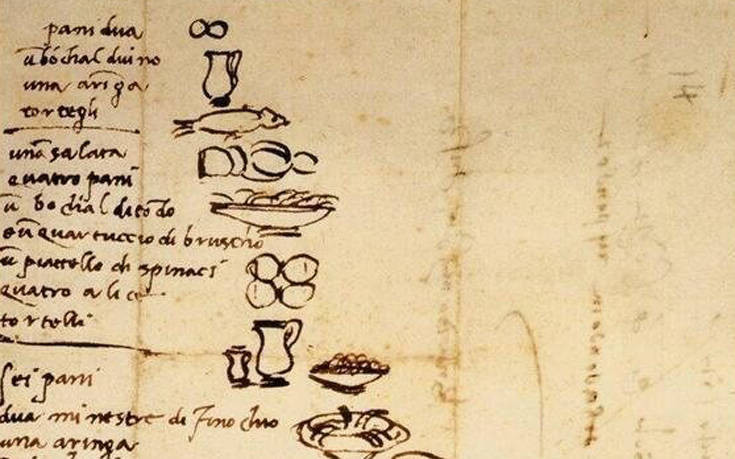 pani dua
ū bochal di vino
una aringa
tortegli
una salata
quatro pani
ū bochal di tōdo
e ū quartuccio di bruscho
ū piattello di spinaci
quatro alice
tortelli
sei pani
dua minestre di finochio
una aringa